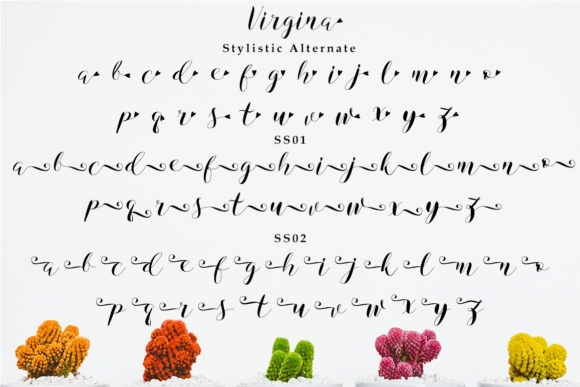 Virgina
Stylistic Alternate
a b c d e f g h i j k l m n o
p q r s t u v w x y z
SS01
a b c d e f g h i j k l m n o
p q r s t u v w x y z
SS02
a b c d e f g h i j k l m n o
p q r s t u v w x y z